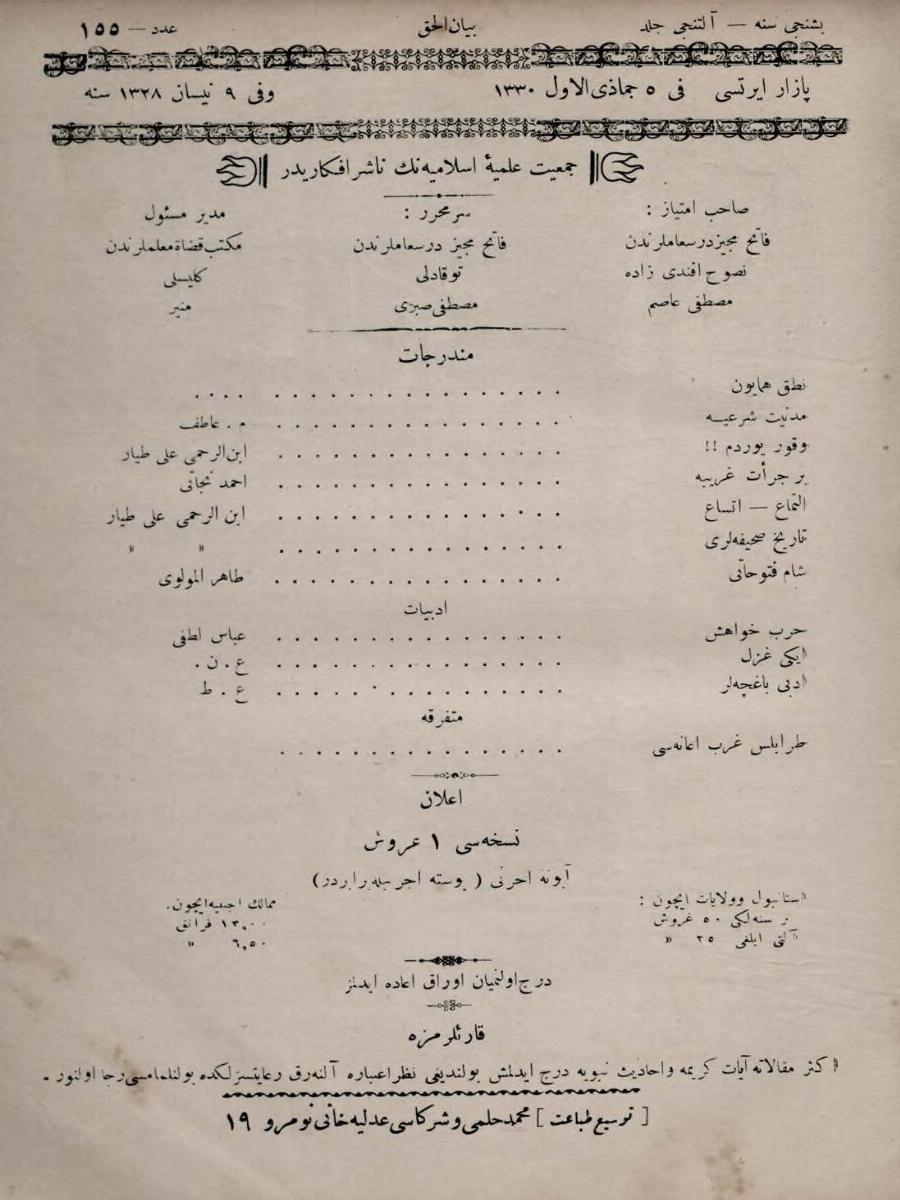 بشنجی سنه — آلتنجی جلد بیان‌الحق عدد — ۱۵۵
پازار ایرتسی فی ۵ جماذی‌الاول ۱۳۳۰ وفی ۹ نیسان ۱۳۲۸ سنه
جمعیت علمیهٔ اسلامیه‌نك ناشر افکاریدر
صاحب امتیاز : سرمحرر : مدیر مسئول
فاتح مجیزدرسعاملرندن فاتح مجیز درسعاملرندن مکتب قضاة معلملرندن
نصوح افندی زاده توقادلی کلیسلی
مصطفی عاصم مصطفی صبری منیر
مندرجات
نطق همایون . . . . . . . . . . . . . . . . . . .
مدنیت شرعیه . . . . . . . . . . . . . . . م . عاطف
وقور یوردم !! . . . . . . . . . . . . . . . ابن‌الرحمی علی طیار
بر جرأت غریبه . . . . . . . . . . . . . . . احمد نجاتی
التماع — اتساع . . . . . . . . . . . . . . . ابن الرحمی علی طیار
تاریخ صحیفه‌لری . . . . . . . . . . . . . . . » »
شام فتوحاتی . . . . . . . . . . . . . . . طاهر المولوی
ادبیات
حرب خواهش . . . . . . . . . . . . . . . عباس لطفی
ایکی غزل . . . . . . . . . . . . . . . ع . ن .
ادبی باغچه‌لر . . . . . . . . . . . . . . . ع . ط
متفرقه
طرابلس غرب اعانه‌سی . . . . . . . . . . . . . . .
اعلان
نسخه‌سی ۱ غروش
آبونه اجرتی ( پوسته اجرتیله برابردر)
استانبول وولایات ایچون : ممالك اجنبیه ایچون.
بر سنه‌لکی ۵۰ غروش ۱۳,۰۰ فرانق
آلتی ایلغی ۲۵ » ۶,۵۰ »
درج اولنمیان اوراق اعاده ایدلمز
قارئلرمزه
اکثر مقالاته آیات کریمه واحادیث نبویه درج ایدلمش بولندیغی نظر اعتباره آلنه‌رق رعایتسزلکده بولنلمامسی رجا اولنور .
[ توسیع طباعت ] محمد حلمی وشرکاسی عدلیه خانی نومرو ۱۹